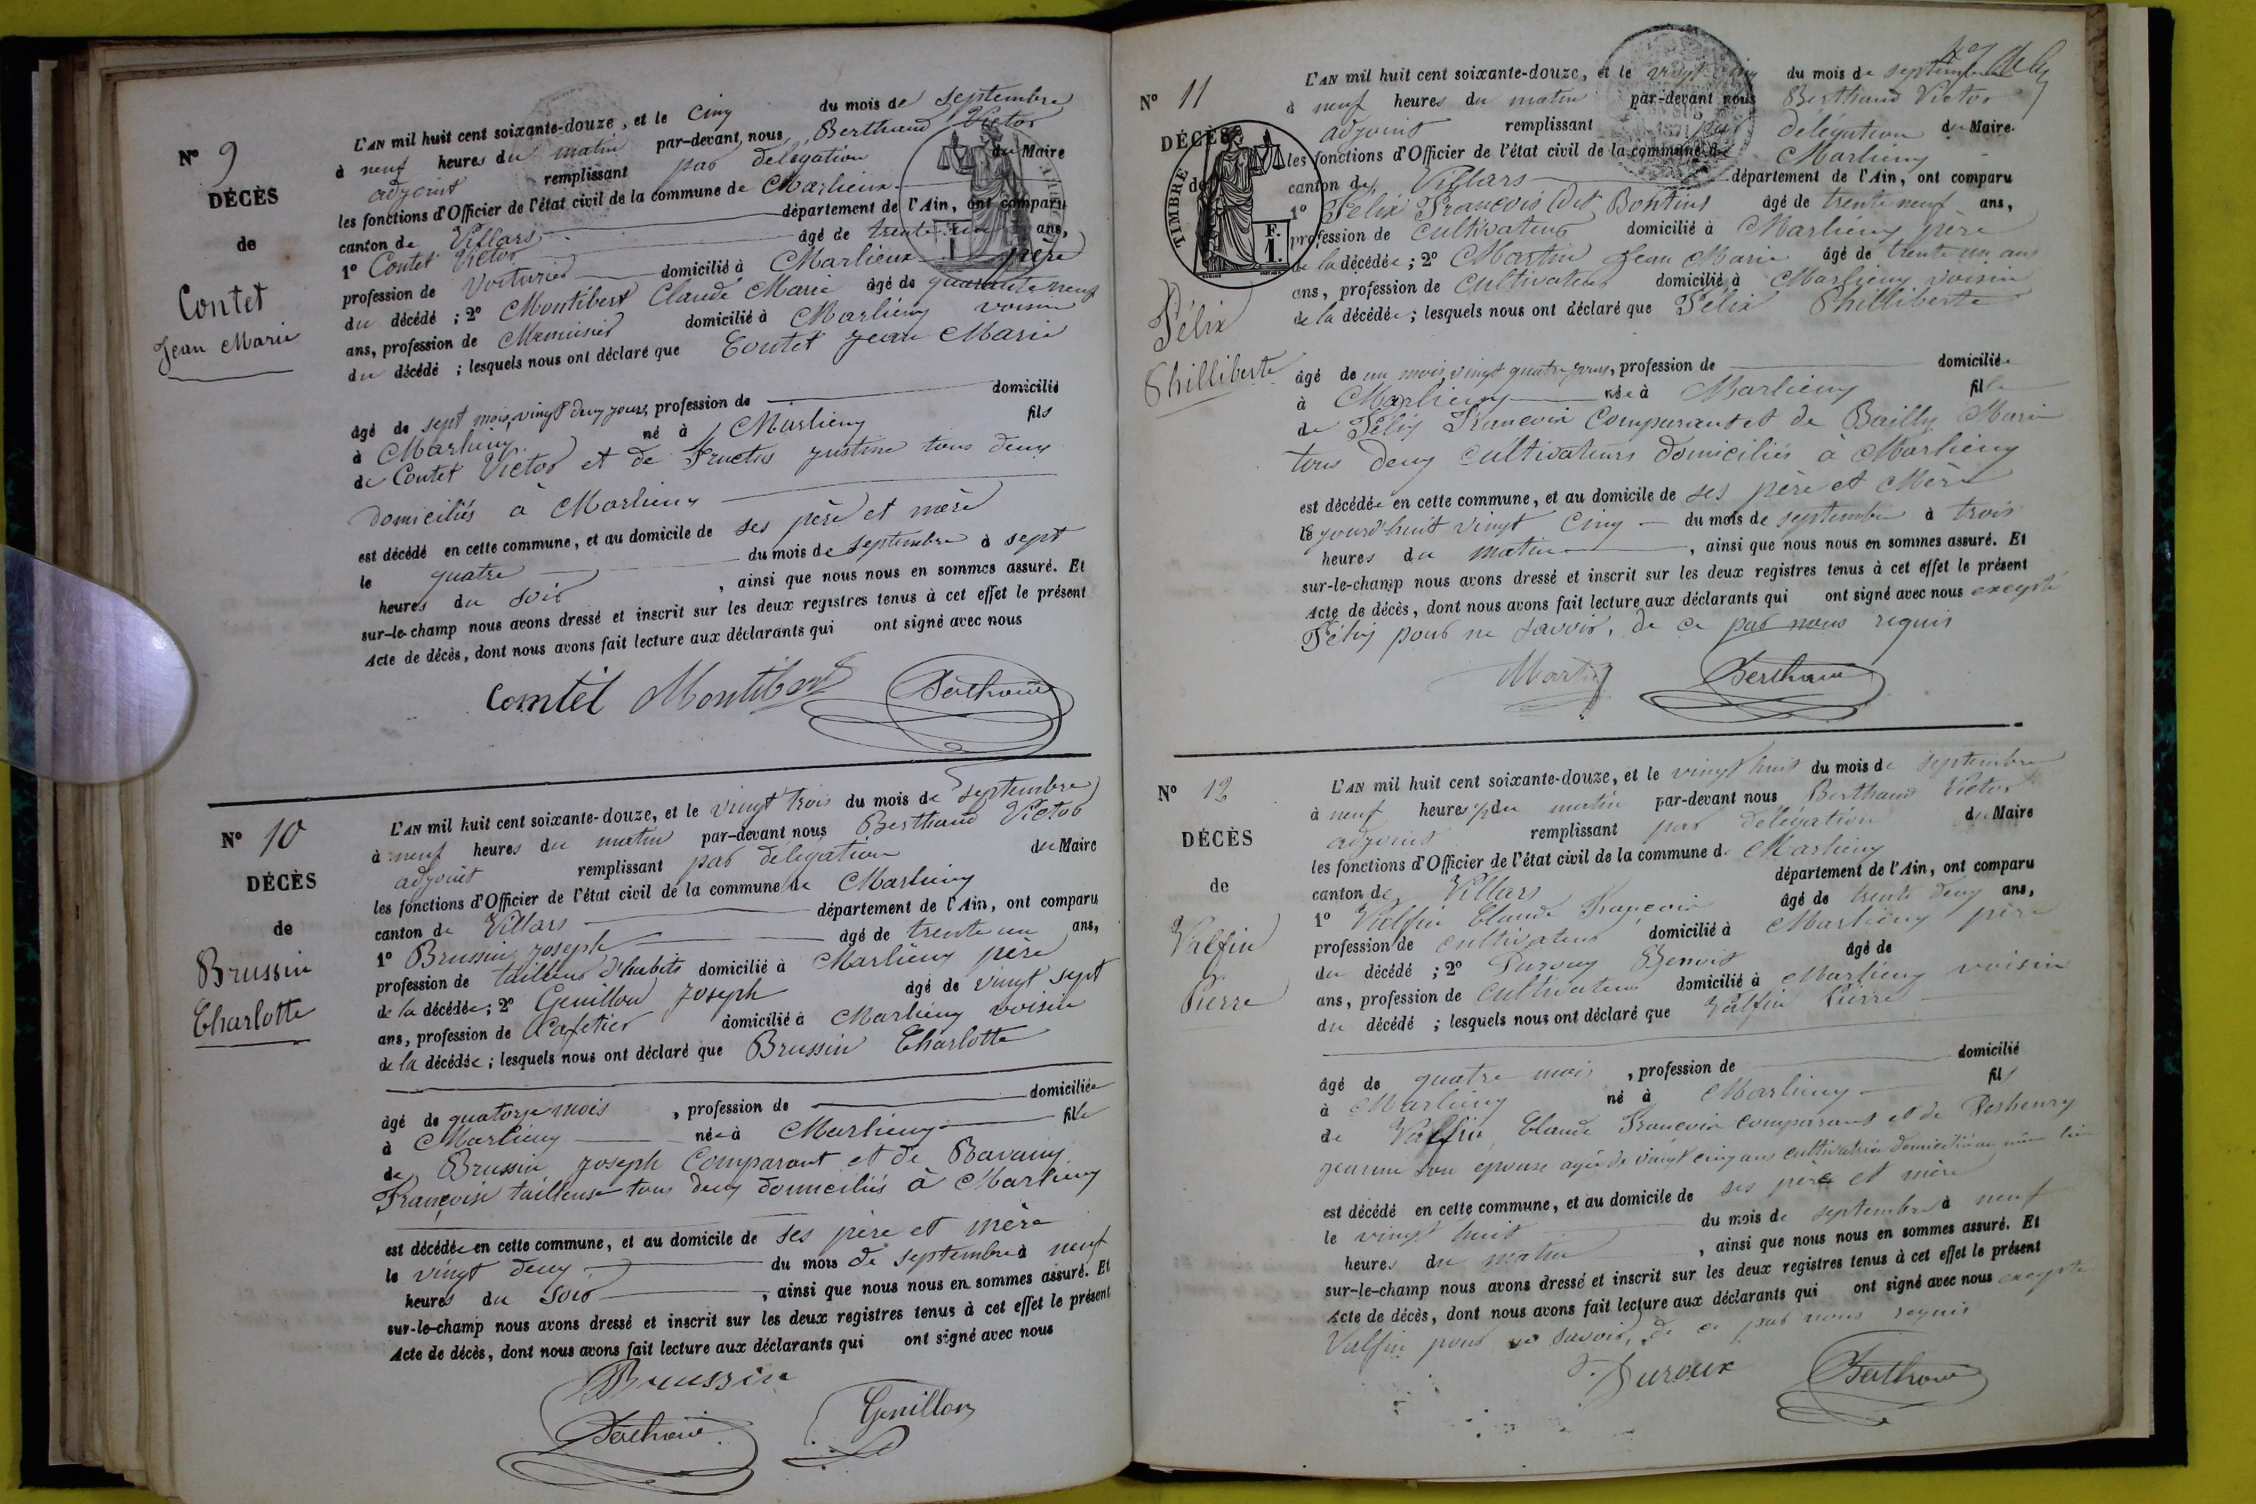 N° 9
DÉCÈS
de
Contet
Jean Marie
L'AN mil huit cent soixante-douze, et le cinq du mois de septembre
à neuf heures du matin par-devant nous Berthaud Victor
adjoint remplissant par délégation du Maire
les fonctions d'Officier de l'état civil de la commune de Marlieux
canton de Villars département de l'Ain, ont comparu
1° Contet Victor âgé de trente ans,
profession de voiturier domicilié à Marlieux père
du décédé ; 2° Montibert Claude Marie âgé de quarante neuf
ans, profession de Menuisier domicilié à Marlieux voisin
du décédé ; lesquels nous ont déclaré que Contet Jean Marie
âgé de sept mois vingt deux jours, profession de domicilié
à Marlieux né à Marlieux fils
de Contet Victor et de Justine tous deux
domiciliés à Marlieux
est décédé en cette commune, et au domicile de ses père et mère
le quatre du mois de septembre à sept
heures du soir , ainsi que nous nous en sommes assuré. Et
sur-le-champ nous avons dressé et inscrit sur les deux registres tenus à cet effet le présent
Acte de décès, dont nous avons fait lecture aux déclarants qui ont signé avec nous
Comtet Montibert Berthaud
N° 10
DÉCÈS
de
Brussin
Charlotte
L'AN mil huit cent soixante-douze, et le vingt trois du mois de septembre
à neuf heures du matin par-devant nous Berthaud Victor
adjoint remplissant par délégation du Maire
les fonctions d'Officier de l'état civil de la commune de Marlieux
canton de Villars département de l'Ain, ont comparu
1° Brussin Joseph âgé de trente un ans,
profession de tailleur d'habits domicilié à Marlieux père
de la décédée ; 2° Genillon Joseph âgé de vingt sept
ans, profession de Cafetier domicilié à Marlieux voisin
de la décédée ; lesquels nous ont déclaré que Brussin Charlotte
âgé de quatorze mois , profession de domiciliée
à Marlieux née à Marlieux fille
de Brussin Joseph Comparant et de
Françoise tailleuse tous deux domiciliés à Marlieux
est décédée en cette commune, et au domicile de ses père et mère
le vingt deux du mois de septembre à neuf
heures du soir , ainsi que nous nous en sommes assuré. Et
sur-le-champ nous avons dressé et inscrit sur les deux registres tenus à cet effet le présent
Acte de décès, dont nous avons fait lecture aux déclarants qui ont signé avec nous
Brussin
Berthaud Genillon
N° 11
DÉCÈS
de
TIMBRE
F.
1.
Félix
Philliberte
L'AN mil huit cent soixante-douze, et le vingt cinq du mois de septembre
à neuf heures du matin par-devant nous Berthaud Victor
adjoint remplissant par délégation du Maire
les fonctions d'Officier de l'état civil de la commune de Marlieux
canton de Villars département de l'Ain, ont comparu
1° Félix François (dit Bontins âgé de trente neuf ans,
profession de cultivateur domicilié à Marlieux père
de la décédée ; 2° Martin Jean Marie âgé de trente un ans
ans, profession de cultivateur domicilié à Marlieux voisin
de la décédée ; lesquels nous ont déclaré que Félix Philliberte
âgé de un mois vingt quatre jours, profession de domiciliée
à Marlieux née à Marlieux fille
de Félix François Comparant et de Bailly Marie
tous deux cultivateurs domiciliés à Marlieux
est décédée en cette commune, et au domicile de ses père et Mère
le jourd'huit vingt cinq du mois de septembre à trois
heures du matin , ainsi que nous nous en sommes assuré. Et
sur-le-champ nous avons dressé et inscrit sur les deux registres tenus à cet effet le présent
Acte de décès, dont nous avons fait lecture aux déclarants qui ont signé avec nous excepté
Félix pour ne savoir, de ce par nous requis
Martin Berthaud
N° 12
DÉCÈS
de
Valfin
Pierre
L'AN mil huit cent soixante-douze, et le vingt huit du mois de septembre
à neuf heures 1/2 du matin par-devant nous Berthaud Victor
adjoint remplissant par délégation du Maire
les fonctions d'Officier de l'état civil de la commune de Marlieux
canton de Villars département de l'Ain, ont comparu
1° Valfin Claude François âgé de trente deux ans,
profession de cultivateur domicilié à Marlieux père
du décédé ; 2° Duroux Benoit âgé de
ans, profession de cultivateur domicilié à Marlieux voisin
du décédé ; lesquels nous ont déclaré que Valfin Pierre
âgé de quatre mois , profession de domicilié
à Marlieux né à Marlieux fils
de Valfin Claude François comparant et de
Jeanne son épouse agée de vingt cinq ans cultivatrice domiciliée au même lieu
est décédé en cette commune, et au domicile de ses père et mère
le vingt huit du mois de septembre à neuf
heures du matin , ainsi que nous nous en sommes assuré. Et
sur-le-champ nous avons dressé et inscrit sur les deux registres tenus à cet effet le présent
Acte de décès, dont nous avons fait lecture aux déclarants qui ont signé avec nous excepté
Valfin pour ne savoir, de ce par nous requis
Duroux Berthaud